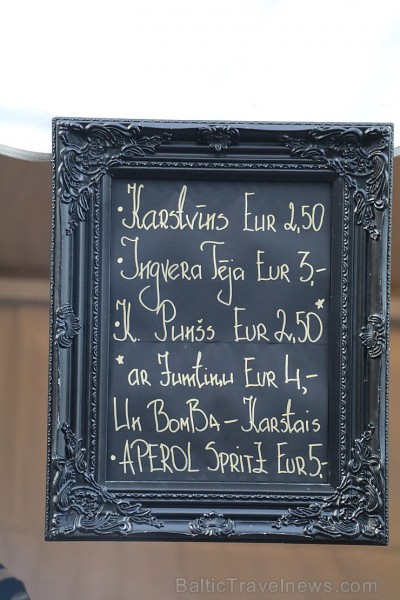 · Karstvīns Eur 2,50
· Ingvera Tēja Eur 3,-
· K. Punšs Eur 2,50 *
* ar Jumtiņu Eur 4,-
Un BomBa - Karstais
· APEROL SpritZ Eur 5,-
BalticTravelnews.com